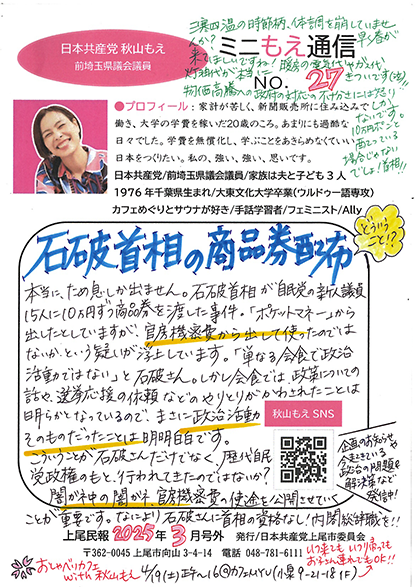 日本共産党 秋山もえ
前埼玉県議会議員
三寒四温の時節柄、体調を崩していませ
んか？
早く春が
来てほしいですね！
ミニもえ通信
NO. 27
物価高騰への政府の対応の不十分さには
しか
ないです。
10万円だこ
場合じゃない
でしょ！首相！
●プロフィール：家計が苦しく、新聞販売所に住み込みで
働き、大学の学費を稼いだ20歳のころ。あまりにも過酷な
日々でした。学費を無償化し、学ぶことをあきらめなくていい
日本をつくりたい。私の、強い、強い、思いです。
日本共産党/前埼玉県議会議員/家族は夫と子ども3人
1976年千葉県生まれ/大東文化大学卒業(ウルドゥー語専攻)
カフェめぐりとサウナが好き/手話学習者/フェミニスト/Ally
どういう
こと!?
石破首相の商品券配布
本当に、ため息しか出ません。石破首相が自民党の新人議員
15人に10万円ずつ商品券を渡した事件。「ポケットマネー」から
出したとしていますが、官房機密費から出して使ったのでは
ないか、という疑いが浮上しています。「単なる会食で政治
活動ではない」と石破さん。しかし会食では、政策についての
話や、選挙応援の依頼などのやりとりがかわされたことは
明らかとなっているので、まさに政治活動
そのものだったことは明明白白です。
こういうことが石破さんだけでなく、歴代自民
党政権のもと、行われてきたのではないか？
闇が神の闇が 官房機密費の使途を公開させていく
ことが重要です。なにより石破さんに首相の資格なし！内閣総辞職を!!
秋山もえ SNS
企画のお知らせ
政治の問題を
解決策など
発信中！
上尾民報 2025年3月号外 発行/日本共産党上尾市委員会
〒362-0045 上尾市向山3-4-14 電話 048-781-6111
おしゃべりカフェ
with 秋山もえ
4/19(土)